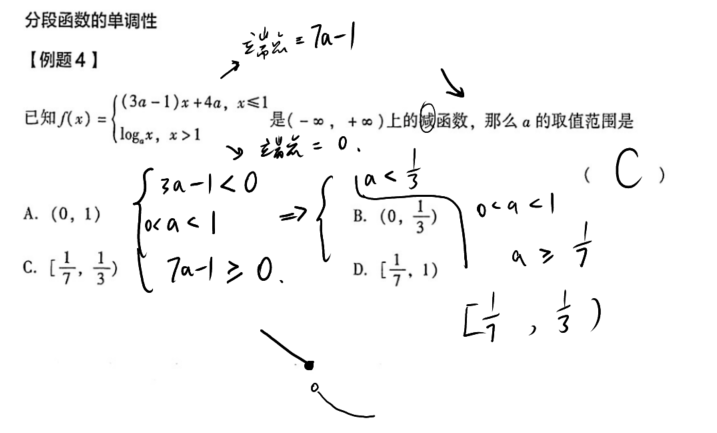 分段函数的单调性
【例题4】
端点 = 7a-1
已知f(x) = { (3a-1)x+4a, x≤1
log_a x, x>1
是(-∞, +∞)上的减函数，那么a的取值范围是
端点 = 0.
( C )
A. (0, 1)
B. (0, 1/3)
C. [1/7, 1/3)
D. [1/7, 1)
{ 3a-1<0
0<a<1
7a-1≥0.
⇒ { a<1/3
0<a<1
a≥1/7
[1/7, 1/3)